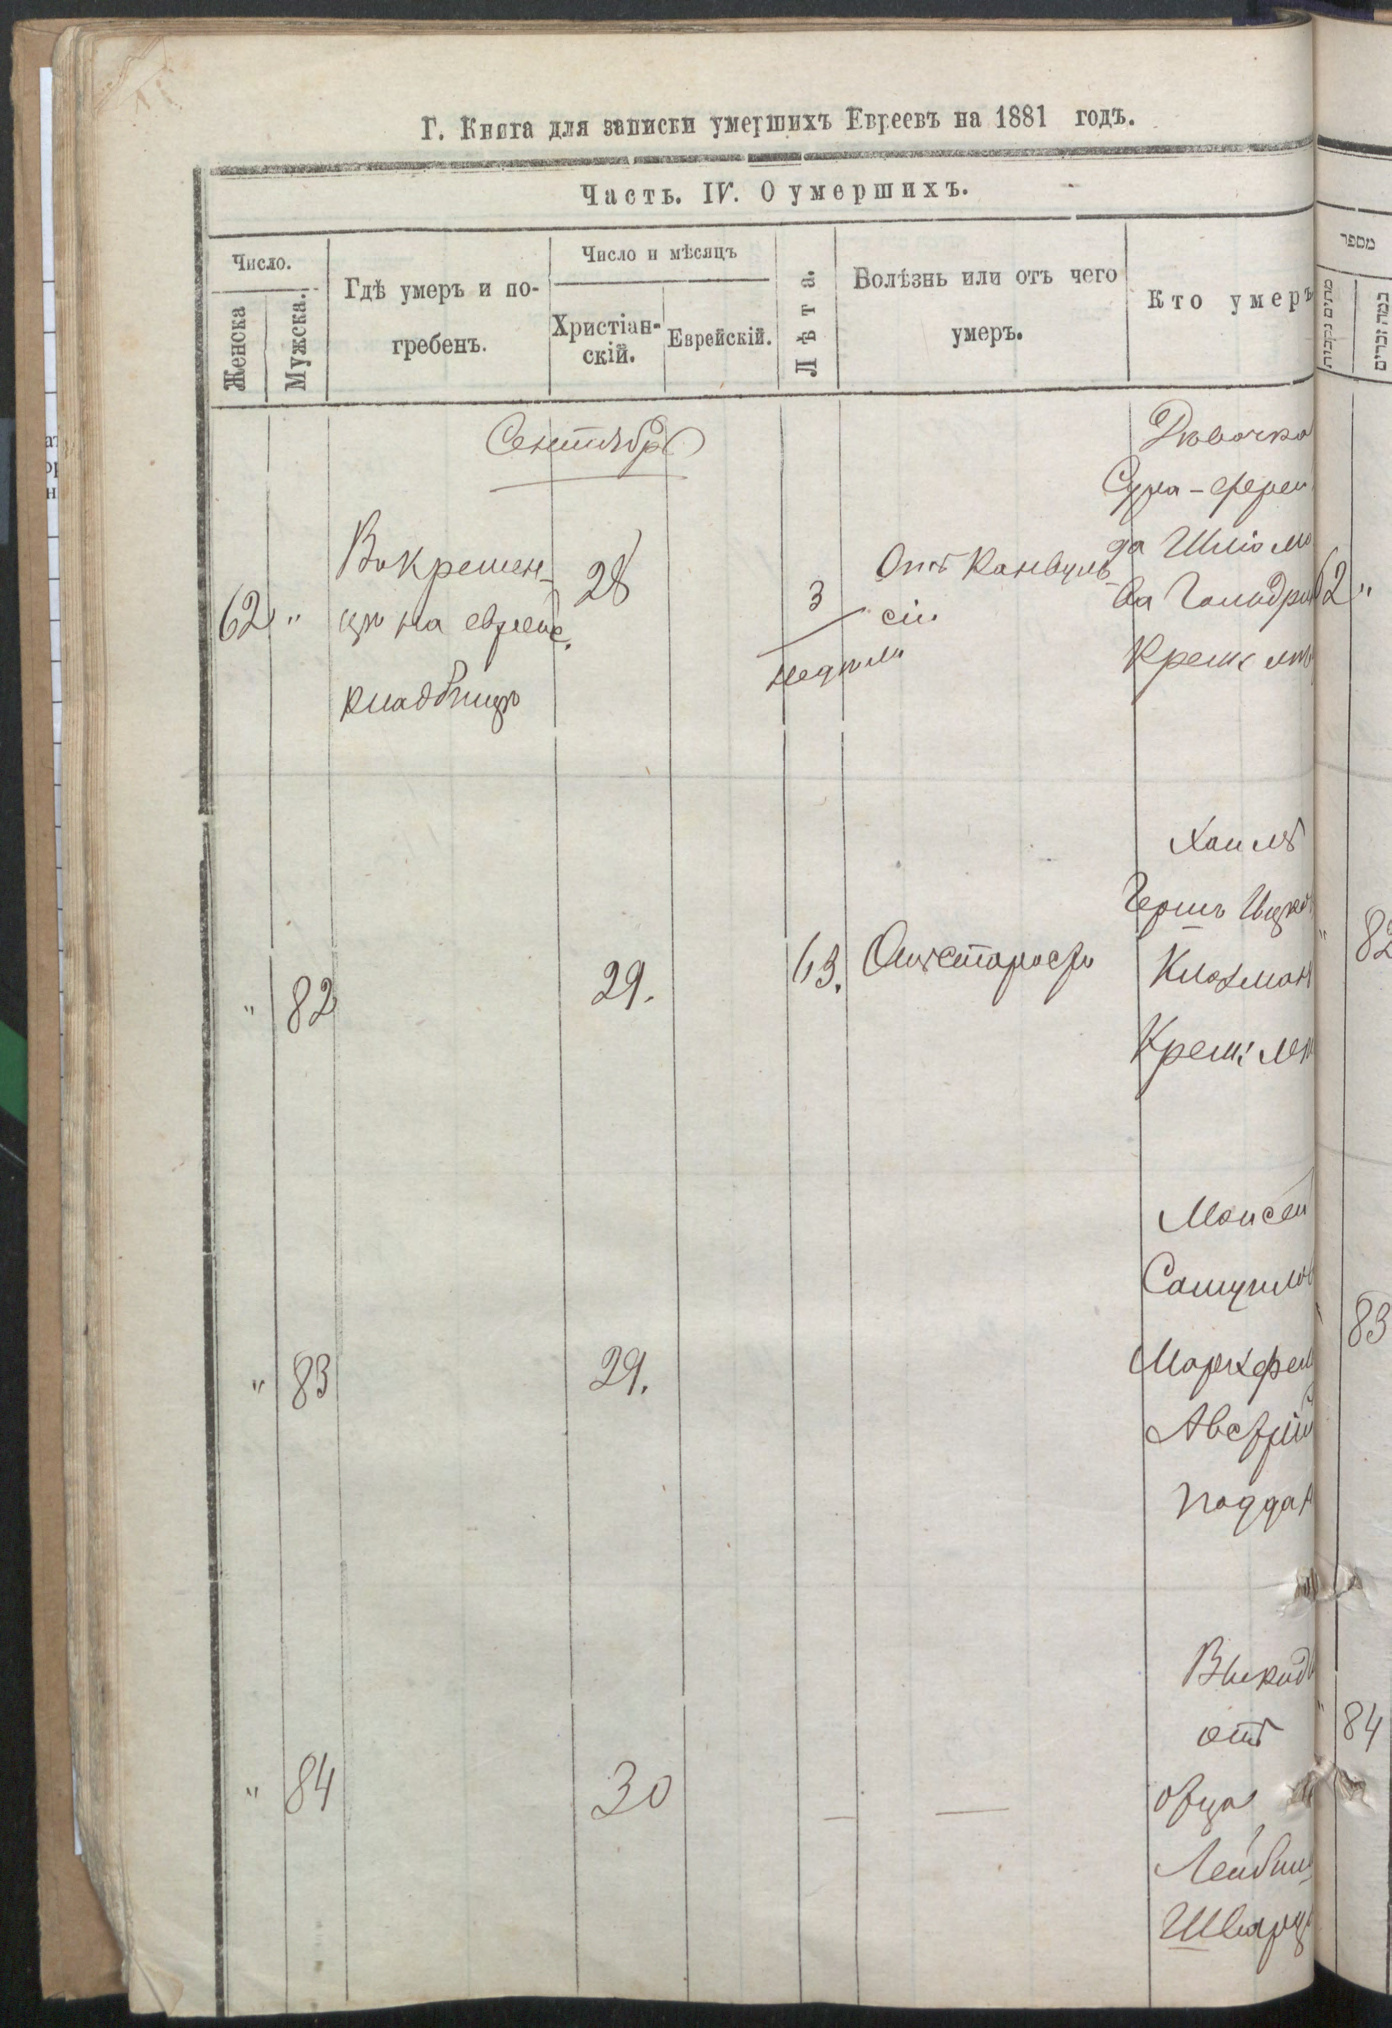 Г. Книга для записки умершихъ Евреевъ на 1881 годъ.
Часть. IV. О умершихъ.
Число.
Женска
Мужска.
Гдѣ умеръ и по-
гребенъ.
Число и мѣсяцъ
Христіан-
скій.
Еврейскій.
Лѣта.
Болѣзнь или отъ чего
умеръ.
Кто умеръ
מספר
Сентябрь
62 "
Вокремен-
цѣ на еврейс.
кладбищѣ
28
3
недѣли
Отъ Конвуль-
сіи
Дѣвочка
Сура-фрей
да Шліомо
ва Гольдри
Кремс
62 "
" 82
29.
63.
Отъ старости
Хаимъ
Гершъ Ицков
Клохман
Крем:
" 82
" 83
29.
Моисей
Самуилов
Маркфел
Австрій
поддан
83
" 84
30
—
—
Выкид
отъ
отца
Лейбиш
Шварц
" 84